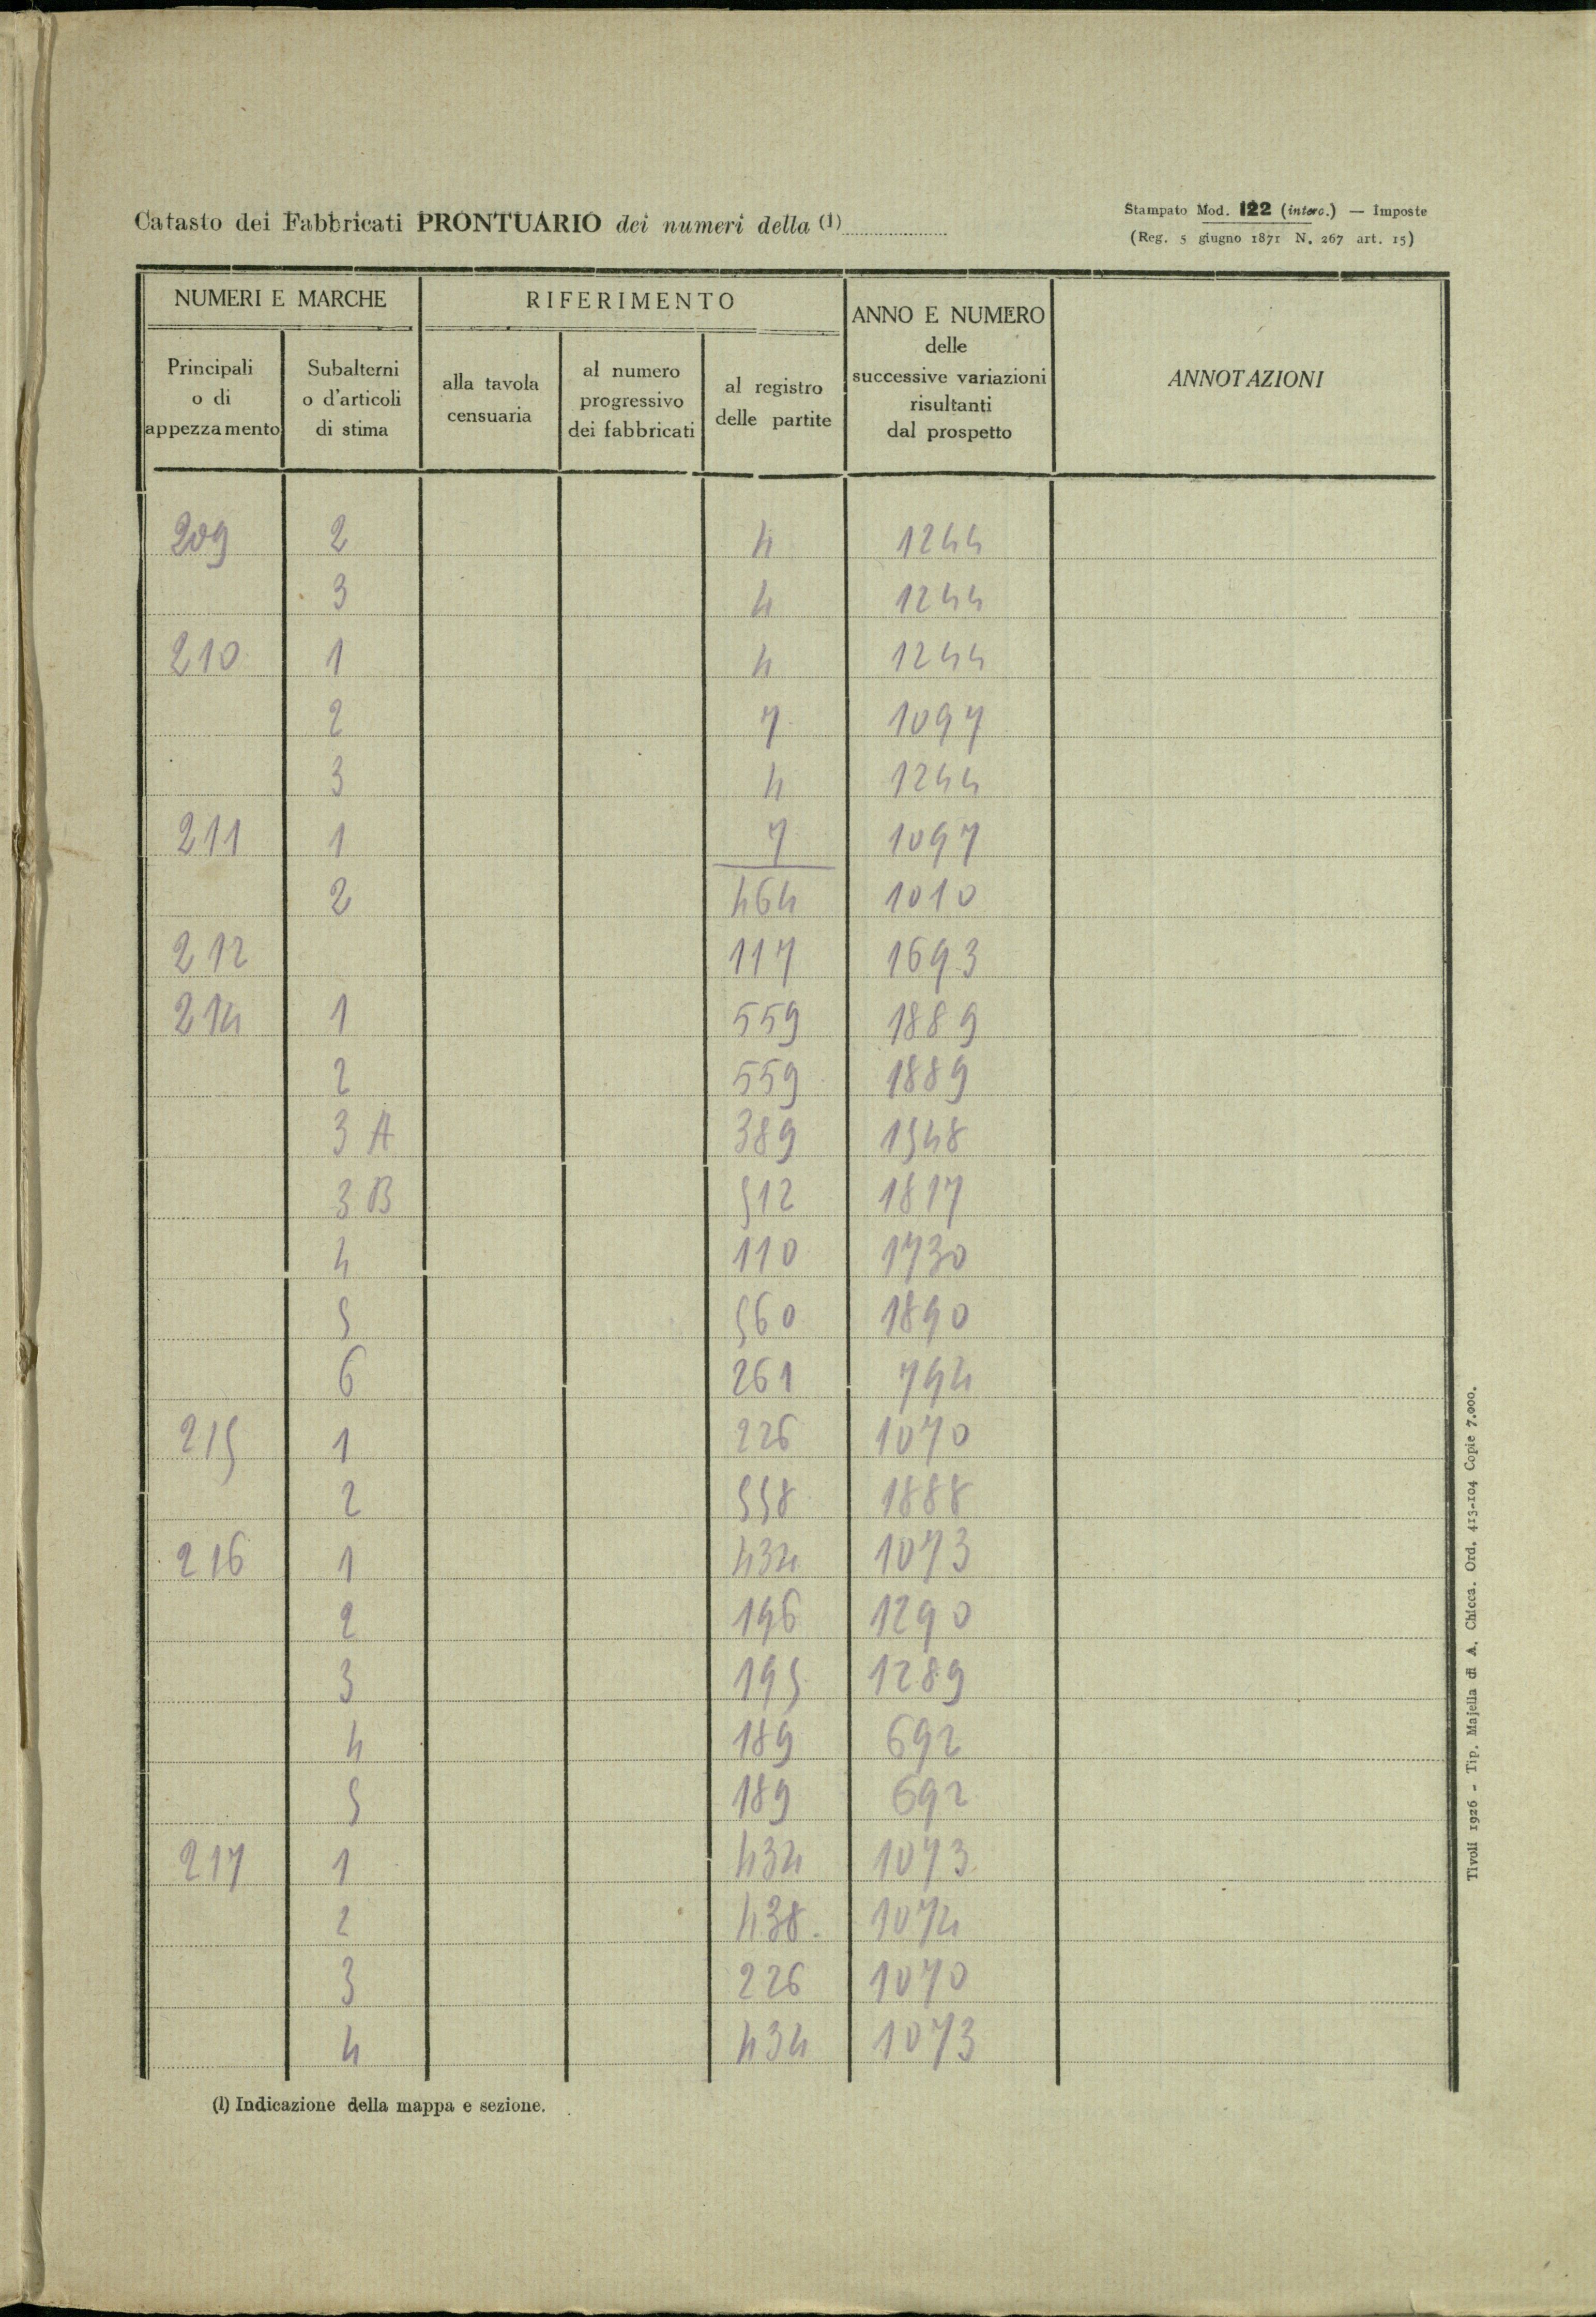 Catasto dei Fabbricati PRONTUARIO dei numeri della (1)
Stampato Mod. 122 (interc.) — Imposte
(Reg. 5 giugno 1871 N. 267 art. 15)
NUMERI E MARCHE
RIFERIMENTO
ANNO E NUMERO
delle
successive variazioni
risultanti
dal prospetto
ANNOTAZIONI
Principali
o di
appezzamento
Subalterni
o d'articoli
di stima
alla tavola
censuaria
al numero
progressivo
dei fabbricati
al registro
delle partite
209 2 4 1244
3 4 1244
210 1 4 1244
2 7 1097
3 4 1244
211 1 7 1097
2 464 1010
212 117 1693
214 1 559 1889
2 559 1889
3 A 389 1548
3 B 512 1817
4 110 1730
5 560 1890
6 261 794
215 1 226 1070
2 558 1888
216 1 434 1073
2 196 1290
3 195 1289
4 189 692
5 189 692
217 1 434 1073
2 438. 1074
3 226 1070
4 434 1073
(1) Indicazione della mappa e sezione.
Tivoli 1926 - Tip. Majella di A. Chicca. Ord. 413-104 Copie 7.000.